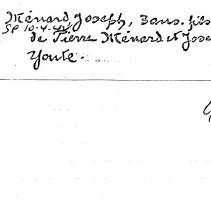 Ménard, Joseph, 3ans. fils
de Pierre Ménard et Jose
Youte.